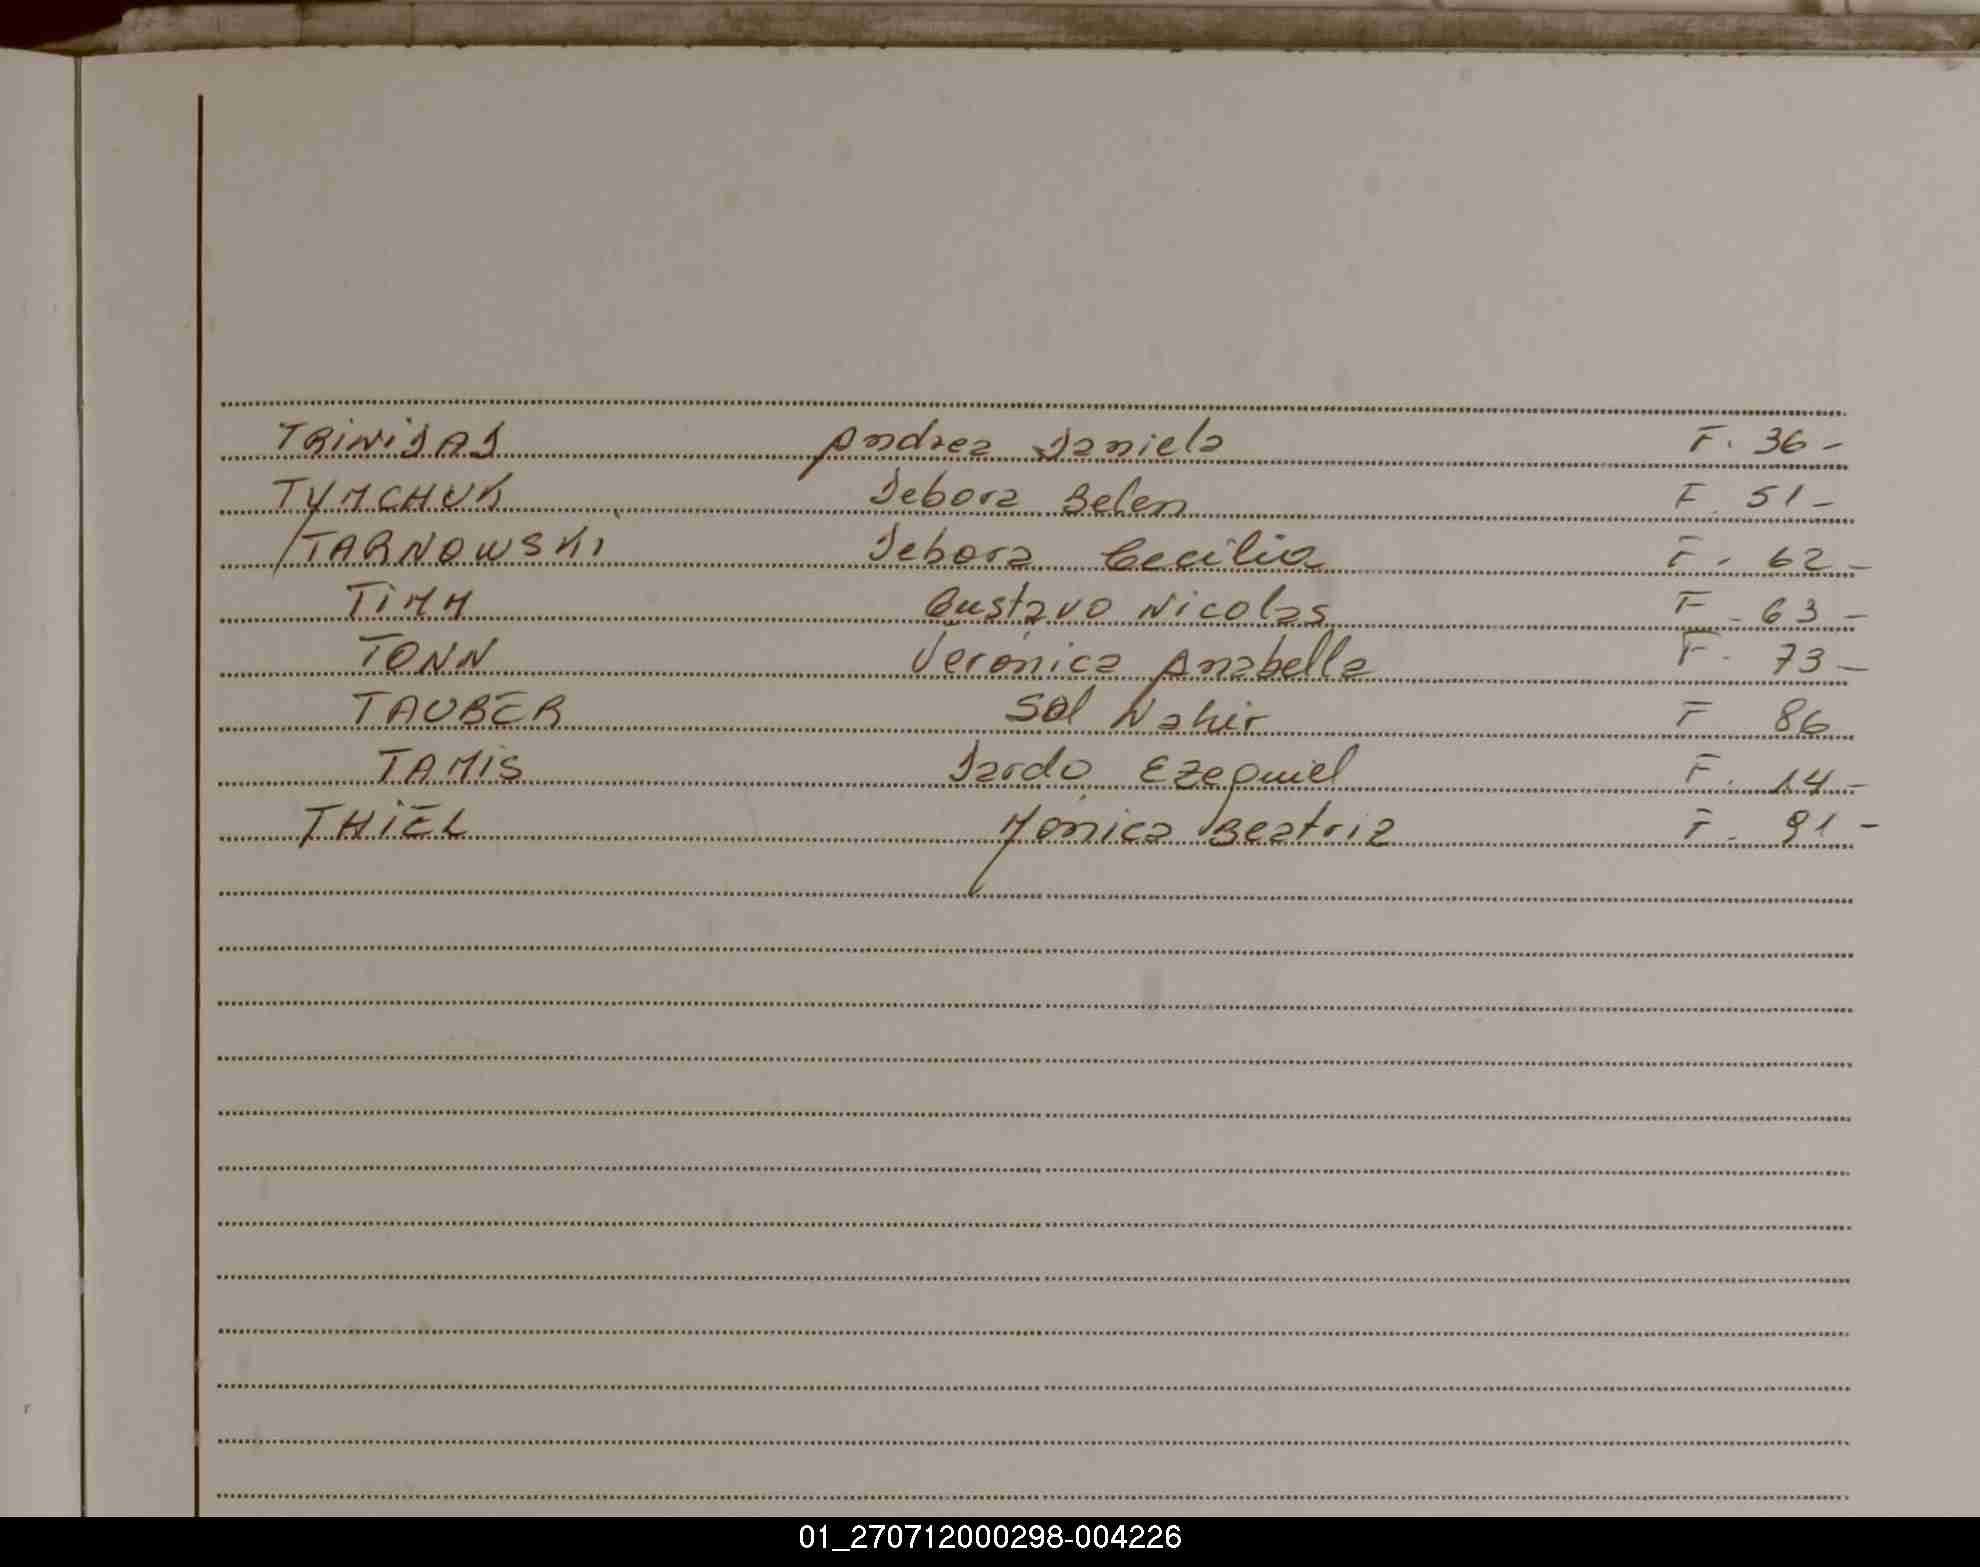 TRINIDAD Andrea Daniela F. 36-
TYMCHUK Debora Belen F. 51-
TARNOWSKI Debora Cecilia F. 62-
TIMM Gustavo Nicolas F. 63-
TONN Verónica Anabella F. 73-
TAUBER Sol Nahir F 86
TAMIS Dardo Ezequiel F. 14-
THIEL Mónica Beatriz F. 91-
01_270712000298-004226